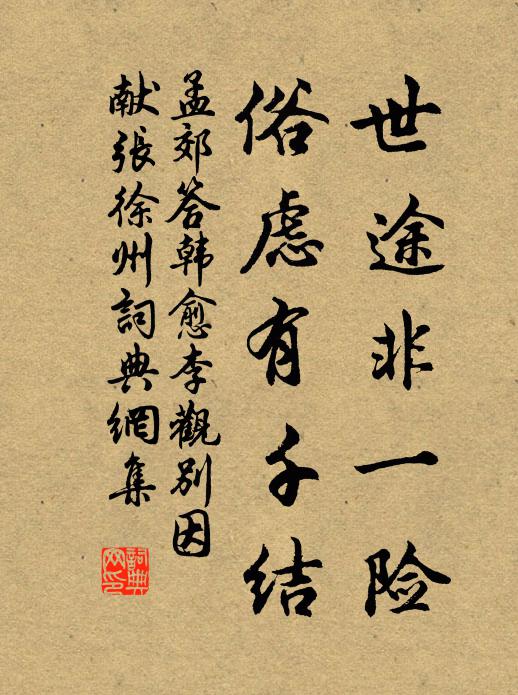 世途非一险
俗虑有千结
孟郊答韩愈李觀别因
献張徐州詞典網集
詞典
网印